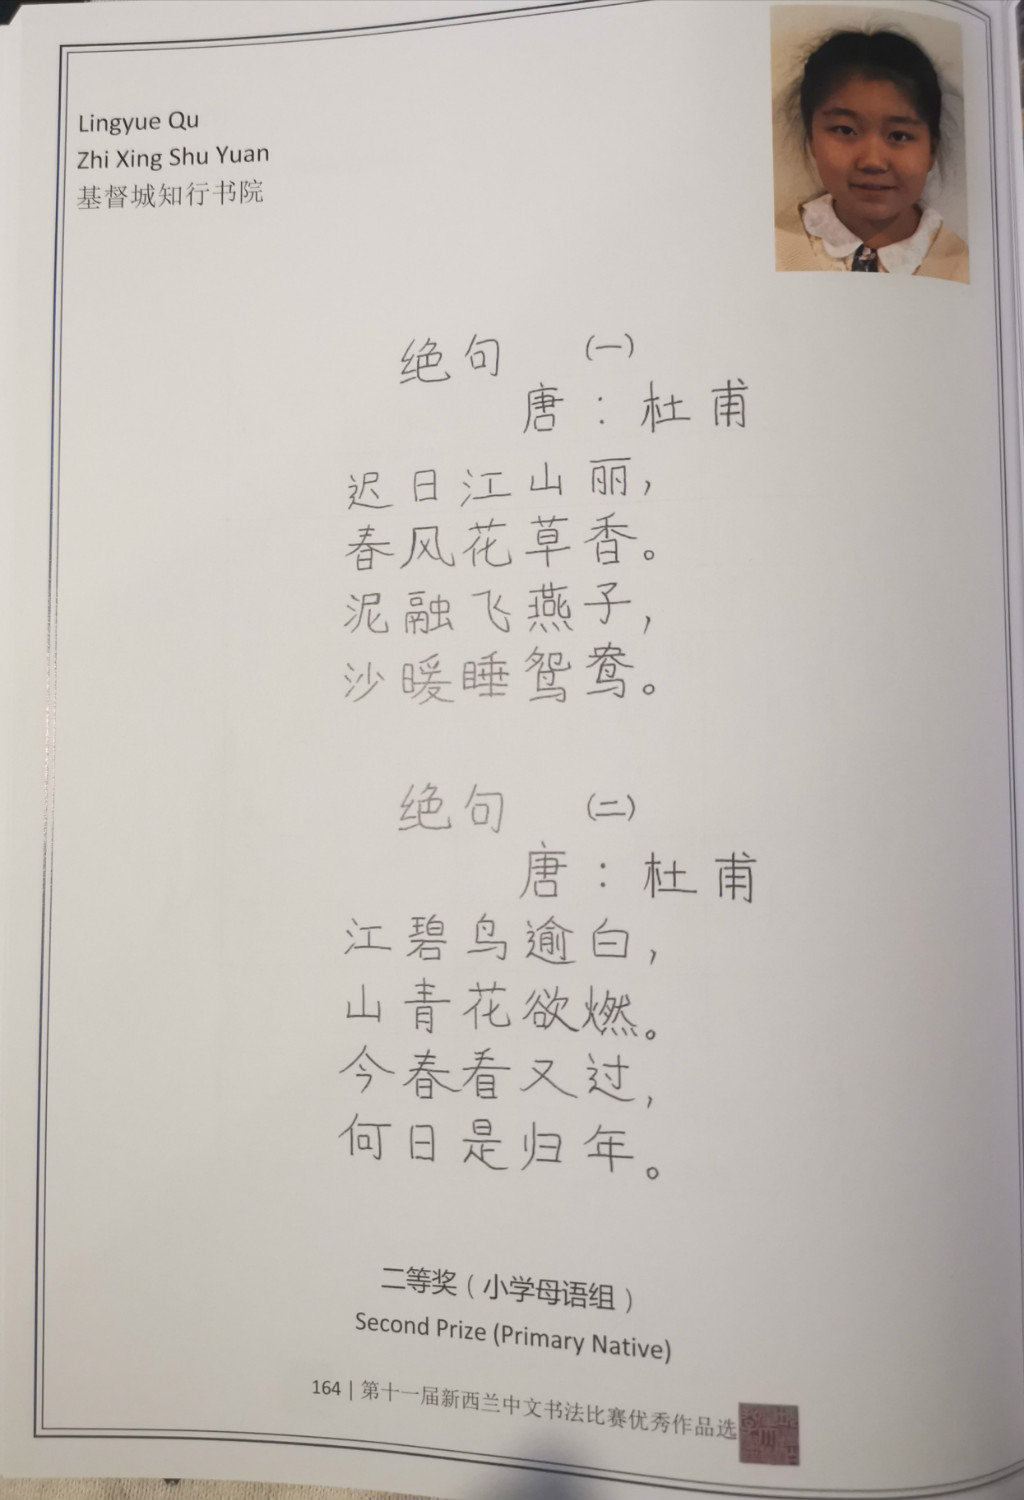 Lingyue Qu
Zhi Xing Shu Yuan
基督城知行书院
绝句 （一）
唐：杜甫
迟日江山丽，
春风花草香。
泥融飞燕子，
沙暖睡鸳鸯。
绝句 （二）
唐：杜甫
江碧鸟逾白，
山青花欲燃。
今春看又过，
何日是归年。
二等奖（小学母语组）
Second Prize (Primary Native)
164 | 第十一届新西兰中文书法比赛优秀作品选